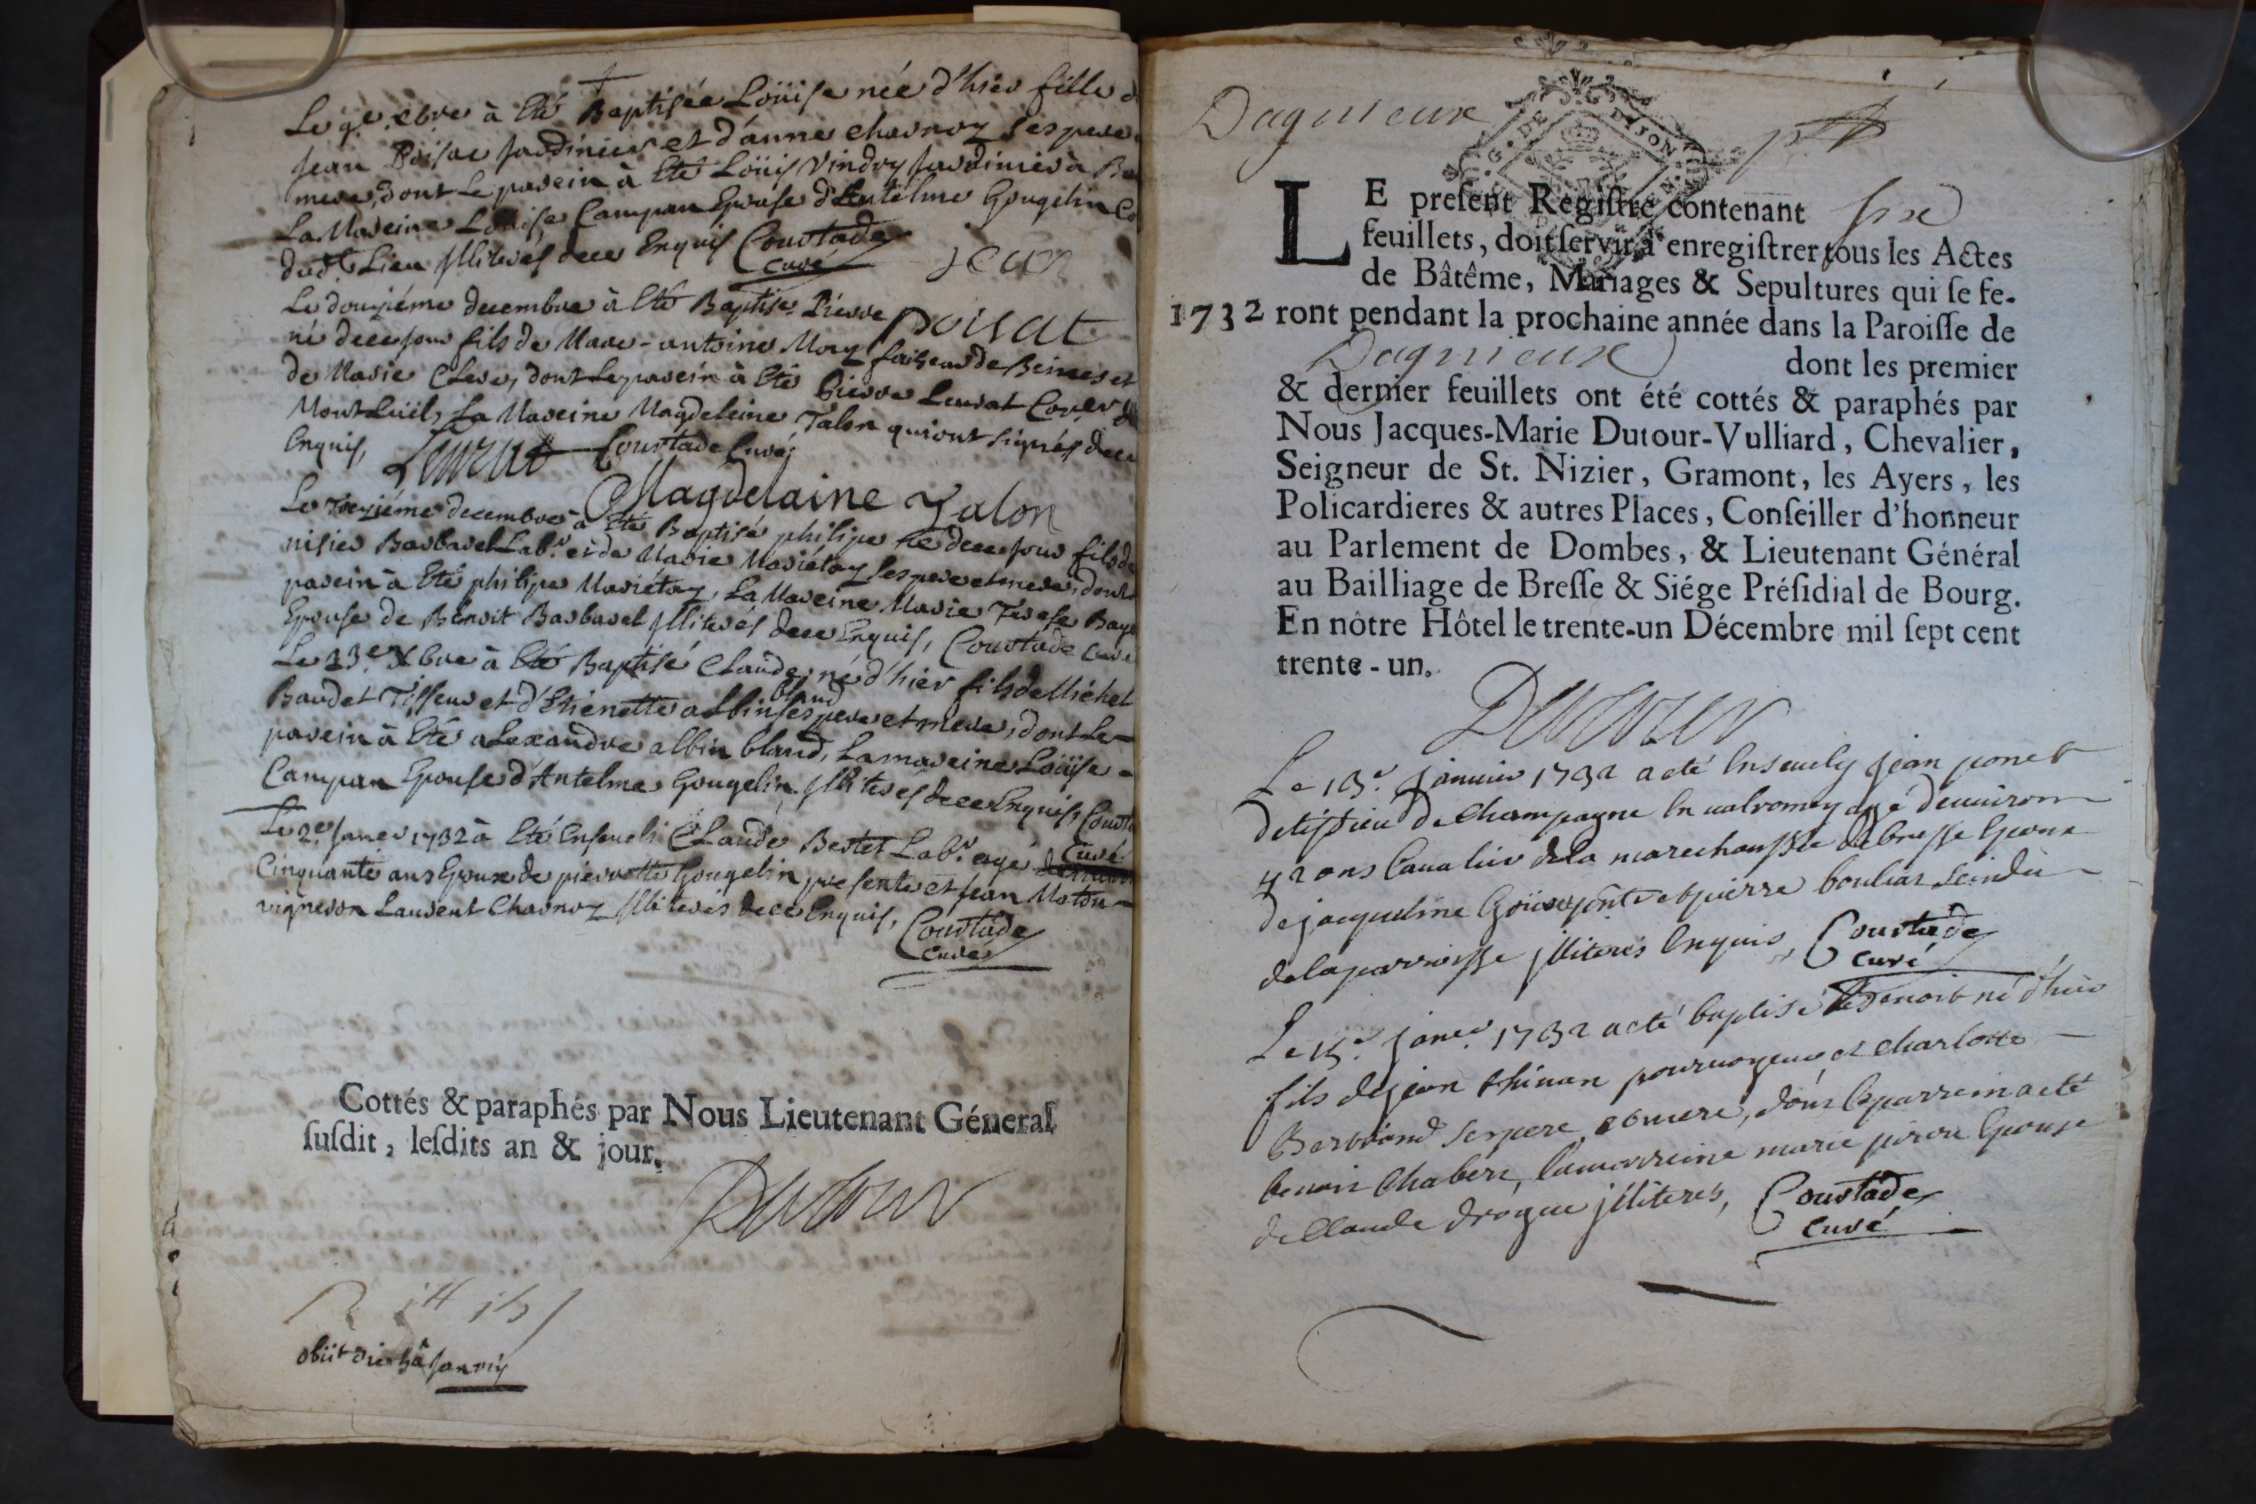 Le 9e xbre à Eté Baptisée Loüise née d'hier fille d
Jean Poisat Jardinier et d'anne charnoz ses pere
mere, dont Le parein à Eté Loüis Vindry Jardinier à
La Mareine Loüise Campan Epouse d'Antelme Gougelin
dudt Lieu Illiterés dece Enquis Courtade
curé
jean
poisat
Le douziéme decembre à Eté Baptisé Pierre
né dece jour fils de Marc-antoine Mory faiseur de Beines et
de Marie Clere, dont Le parein à Eté Pierre Leurat
Montluël, La Mareine Magdeleine Talon qui ont signés dece
Enquis, Leurat Courtade Curé
Magdelaine Talon
Le treziéme decembre à Eté Baptisé philipe né dece jour fils de
nisier Barbarel Labr. et de Marie Mariétoz ses pere et mere, dont
parein à Eté philipe Mariétoz, La Mareine Marie Terese
Epouse de Benoit Barbarel Illiterés dece Enquis, Courtade curé
Le 23e Xbre à Eté Baptisé Claude, né d'hier fils de Michel
bland
Baudet Tisseur et d'Etienette albin ses pere et mere, dont Le
parein à Eté alexandre albin bland, La mareine Loüise
Campan Epouse d'Antelme Gougelin Illiterés dece Enquis, Courta
curé
Le 2e Janer 1732 à Eté Enseveli Claude Bertet Labr. agé
Cinquante ans Epoux de pierrette Gougelin presente et Jean
vigneron Laurent Charnoz Illiterés dece Enquis, Courtade
Curé
Cottés & paraphés par Nous Lieutenant Géneral
susdit, lesdits an & jour.
Dutour
obiit die
Dagnieux
G. DE DIJON
LE present Registre contenant six
feuillets, doit servir à enregistrer tous les Actes
de Bâtême, Mariages & Sepultures qui se fe-
1732 ront pendant la prochaine année dans la Paroisse de
Dagnieux dont les premier
& dernier feuillets ont été cottés & paraphés par
Nous Jacques-Marie Dutour-Vulliard, Chevalier,
Seigneur de St. Nizier, Gramont, les Ayers, les
Policardieres & autres Places, Conseiller d'honneur
au Parlement de Dombes, & Lieutenant Général
au Bailliage de Bresse & Siége Présidial de Bourg.
En nôtre Hôtel le trente-un Décembre mil sept cent
trente-un.
Dutour
Le 13e janvier 1732 a eté Enseuely jean ponet
de Champagne En valromey agé denuiron
42 ans Caualier dela marechaussée de bresse Epoux
de jacqueline et pierre bouliat
dela parroisse jlliterés Enquis, Courtade
curé
Le 15e janer 1732 a eté baptisé Benoit né d'hier
fils de jean thinan pouruoyeur et charlotte
Bertrand ses pere et mere, dont le parrein a eté
benoit Chabert, la marreine marie Epouse
de Claude drogue jlliterés, Courtade
curé